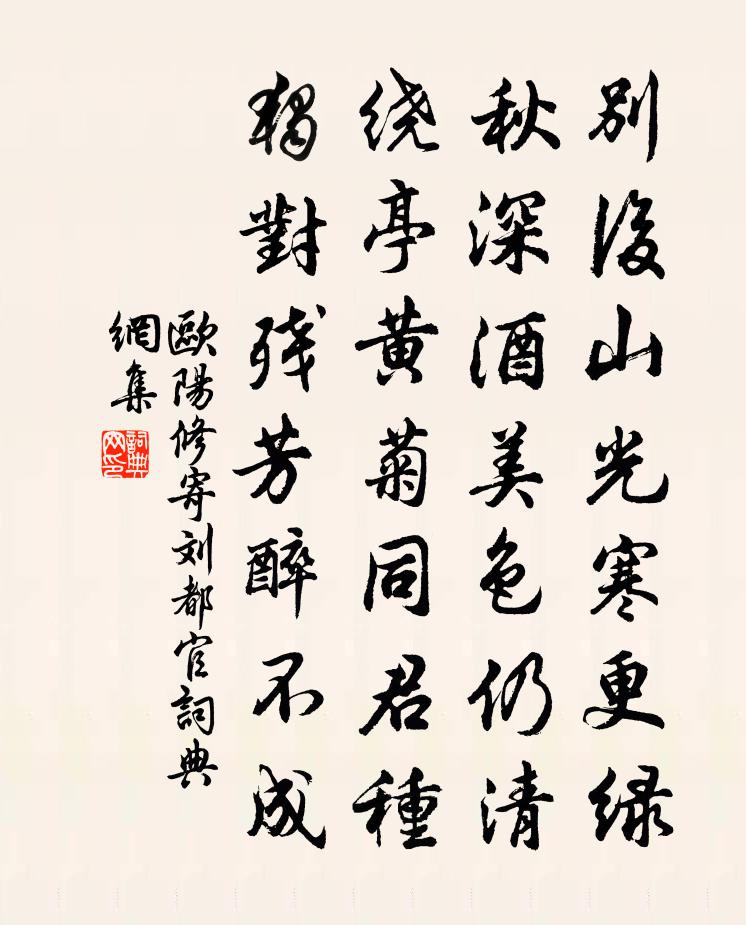 别後山光寒更緑
秋深酒美色仍清
绕亭黄菊同君種
獨對残芳醉不成
歐陽修寄刘都官詞典
網集
詞典網印